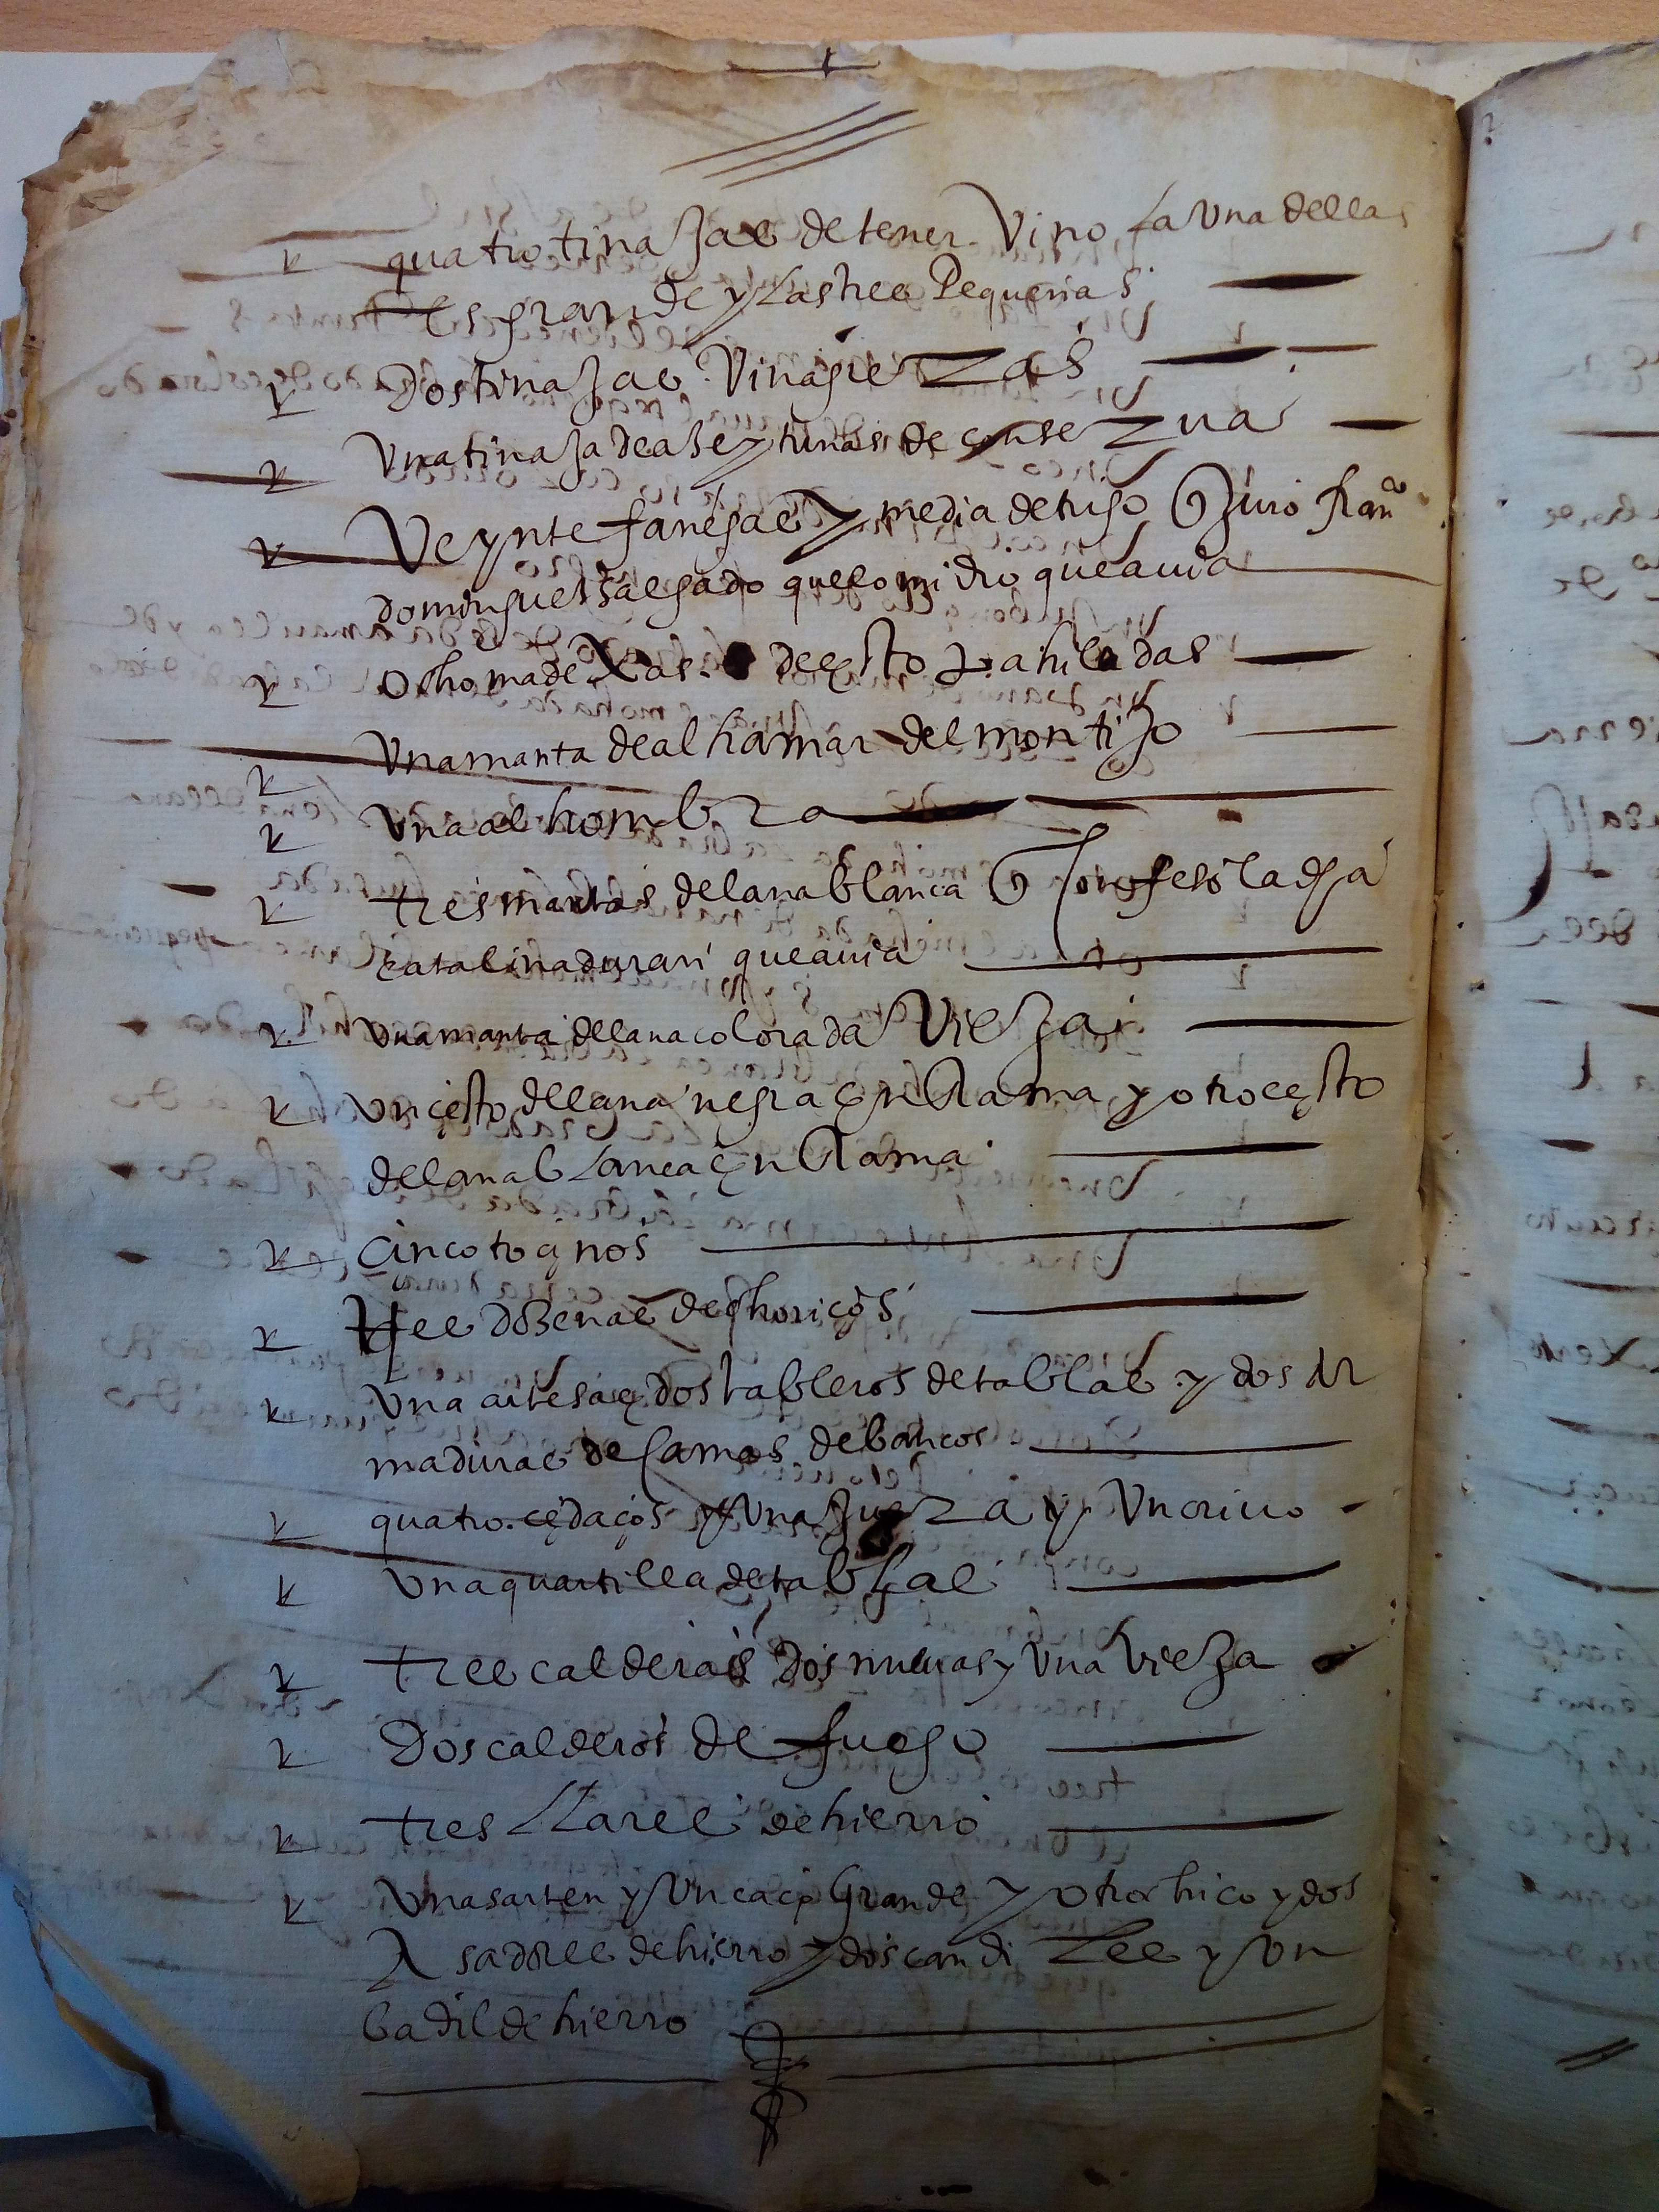 quatro tinajas de tener Vino la Una dellas
es grande y las tres Pequeñas
Dos tinajas Vinagreras
Una tinaja de aseytunas de conserua
Veynte fanegas y media de trigo q Juró fran^co
dominguez salgado que lo midio que auia
ocho madexas de esto hiladas
Una manta de alhamar del montijo
Una alhombra
tres mantas de lana blanca q Confeso la dha
catalina duran que auia
Una manta de lana colorada Vieja
Un çesto de lana negra en Rama y otro çesto
de lana blanca en Rama
çinco toçinos
tres dozenas de choriços
Una artesa e dos tableros de tablas y dos Ar
maduras de camas de bancos
quatro çedaços y Una y Un criuo
Una quartilla de tablas
tres calderas dos nueuas y Una Vieja
Dos calderos de fuego
tres llares de hierro
Una sarten y Un caço Grande y otro chico y dos
Asadores de hierro y dos candiles y Un
badil de hierro